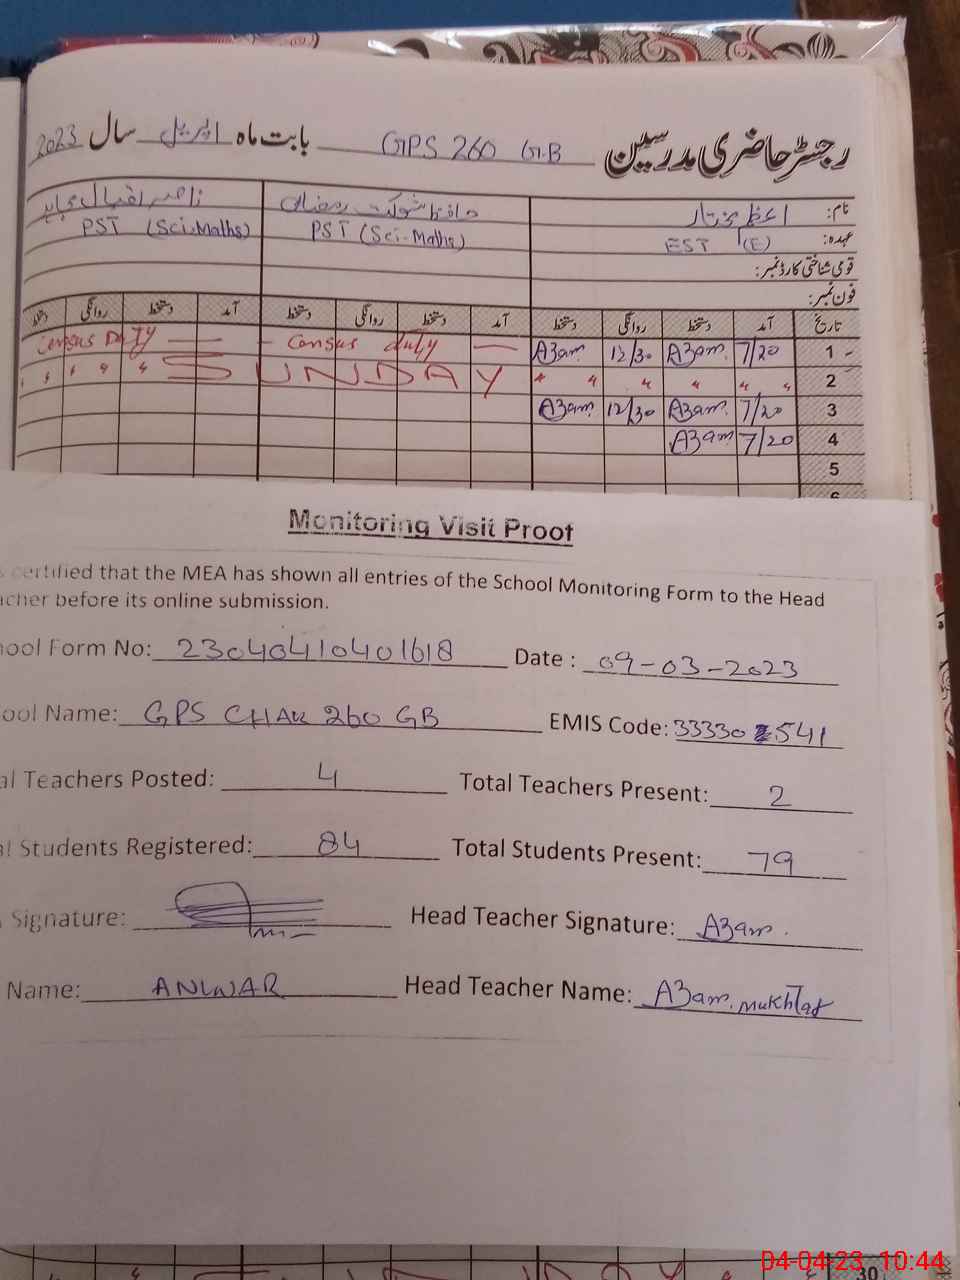 رجسٹر حاضری مدرسین GPS 260 G.B بابت ماہ اپریل سال 2023
نام: اعظم مختار حافظ شوکت رمضان
عہدہ: EST (E) PST (Sci-Maths) PST (Sci-Maths)
قومی شناختی کارڈ نمبر:
فون نمبر:
تاریخ آمد دستخط روانگی دستخط آمد دستخط روانگی دستخط آمد دستخط روانگی دستخط
1 7/20 A3am. 12/30 A3am Census duty Census Duty
2 " " " " " " SUNDAY " " " "
3 7/20 A3am. 12/30 A3am.
4 7/20 A3am
5
6
Monitoring Visit Proof
certified that the MEA has shown all entries of the School Monitoring Form to the Head
acher before its online submission.
ool Form No: 23040410401618 Date : 09-03-2023
ool Name: GPS CHAK 260 GB EMIS Code: 33330 541
al Teachers Posted: 4 Total Teachers Present: 2
al Students Registered: 84 Total Students Present: 79
Signature: Head Teacher Signature: A3am.
Name: ANWAR Head Teacher Name: A3am. Mukhtar
30
04-04-23 10:44